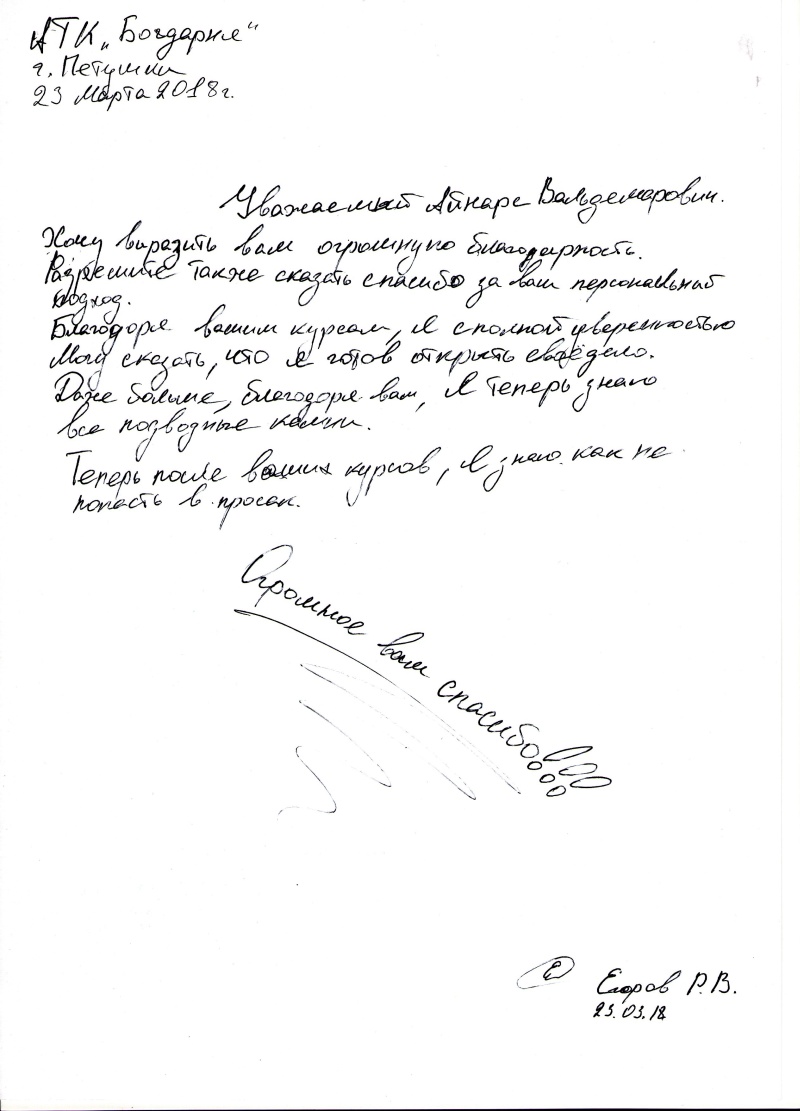 АТК „Богдарня"
г. Петушки
23 Марта 2018г.
Уважаемый Айнарс Вальдемарович.
Хочу выразить вам огромную благодарность.
Разрешите также сказать спасибо за ваш персональный
подход.
Благодоря вашим курсам, я с полной уверенностью
Могу сказать, что я готов открыть своё дело.
Даже больше, благодоря вам, я теперь знаю
все подводные камни.
Теперь после ваших курсов, я знаю как не
попасть в просак.
Огромное вам спасибо!!!
Егоров Р.В.
23.03.18